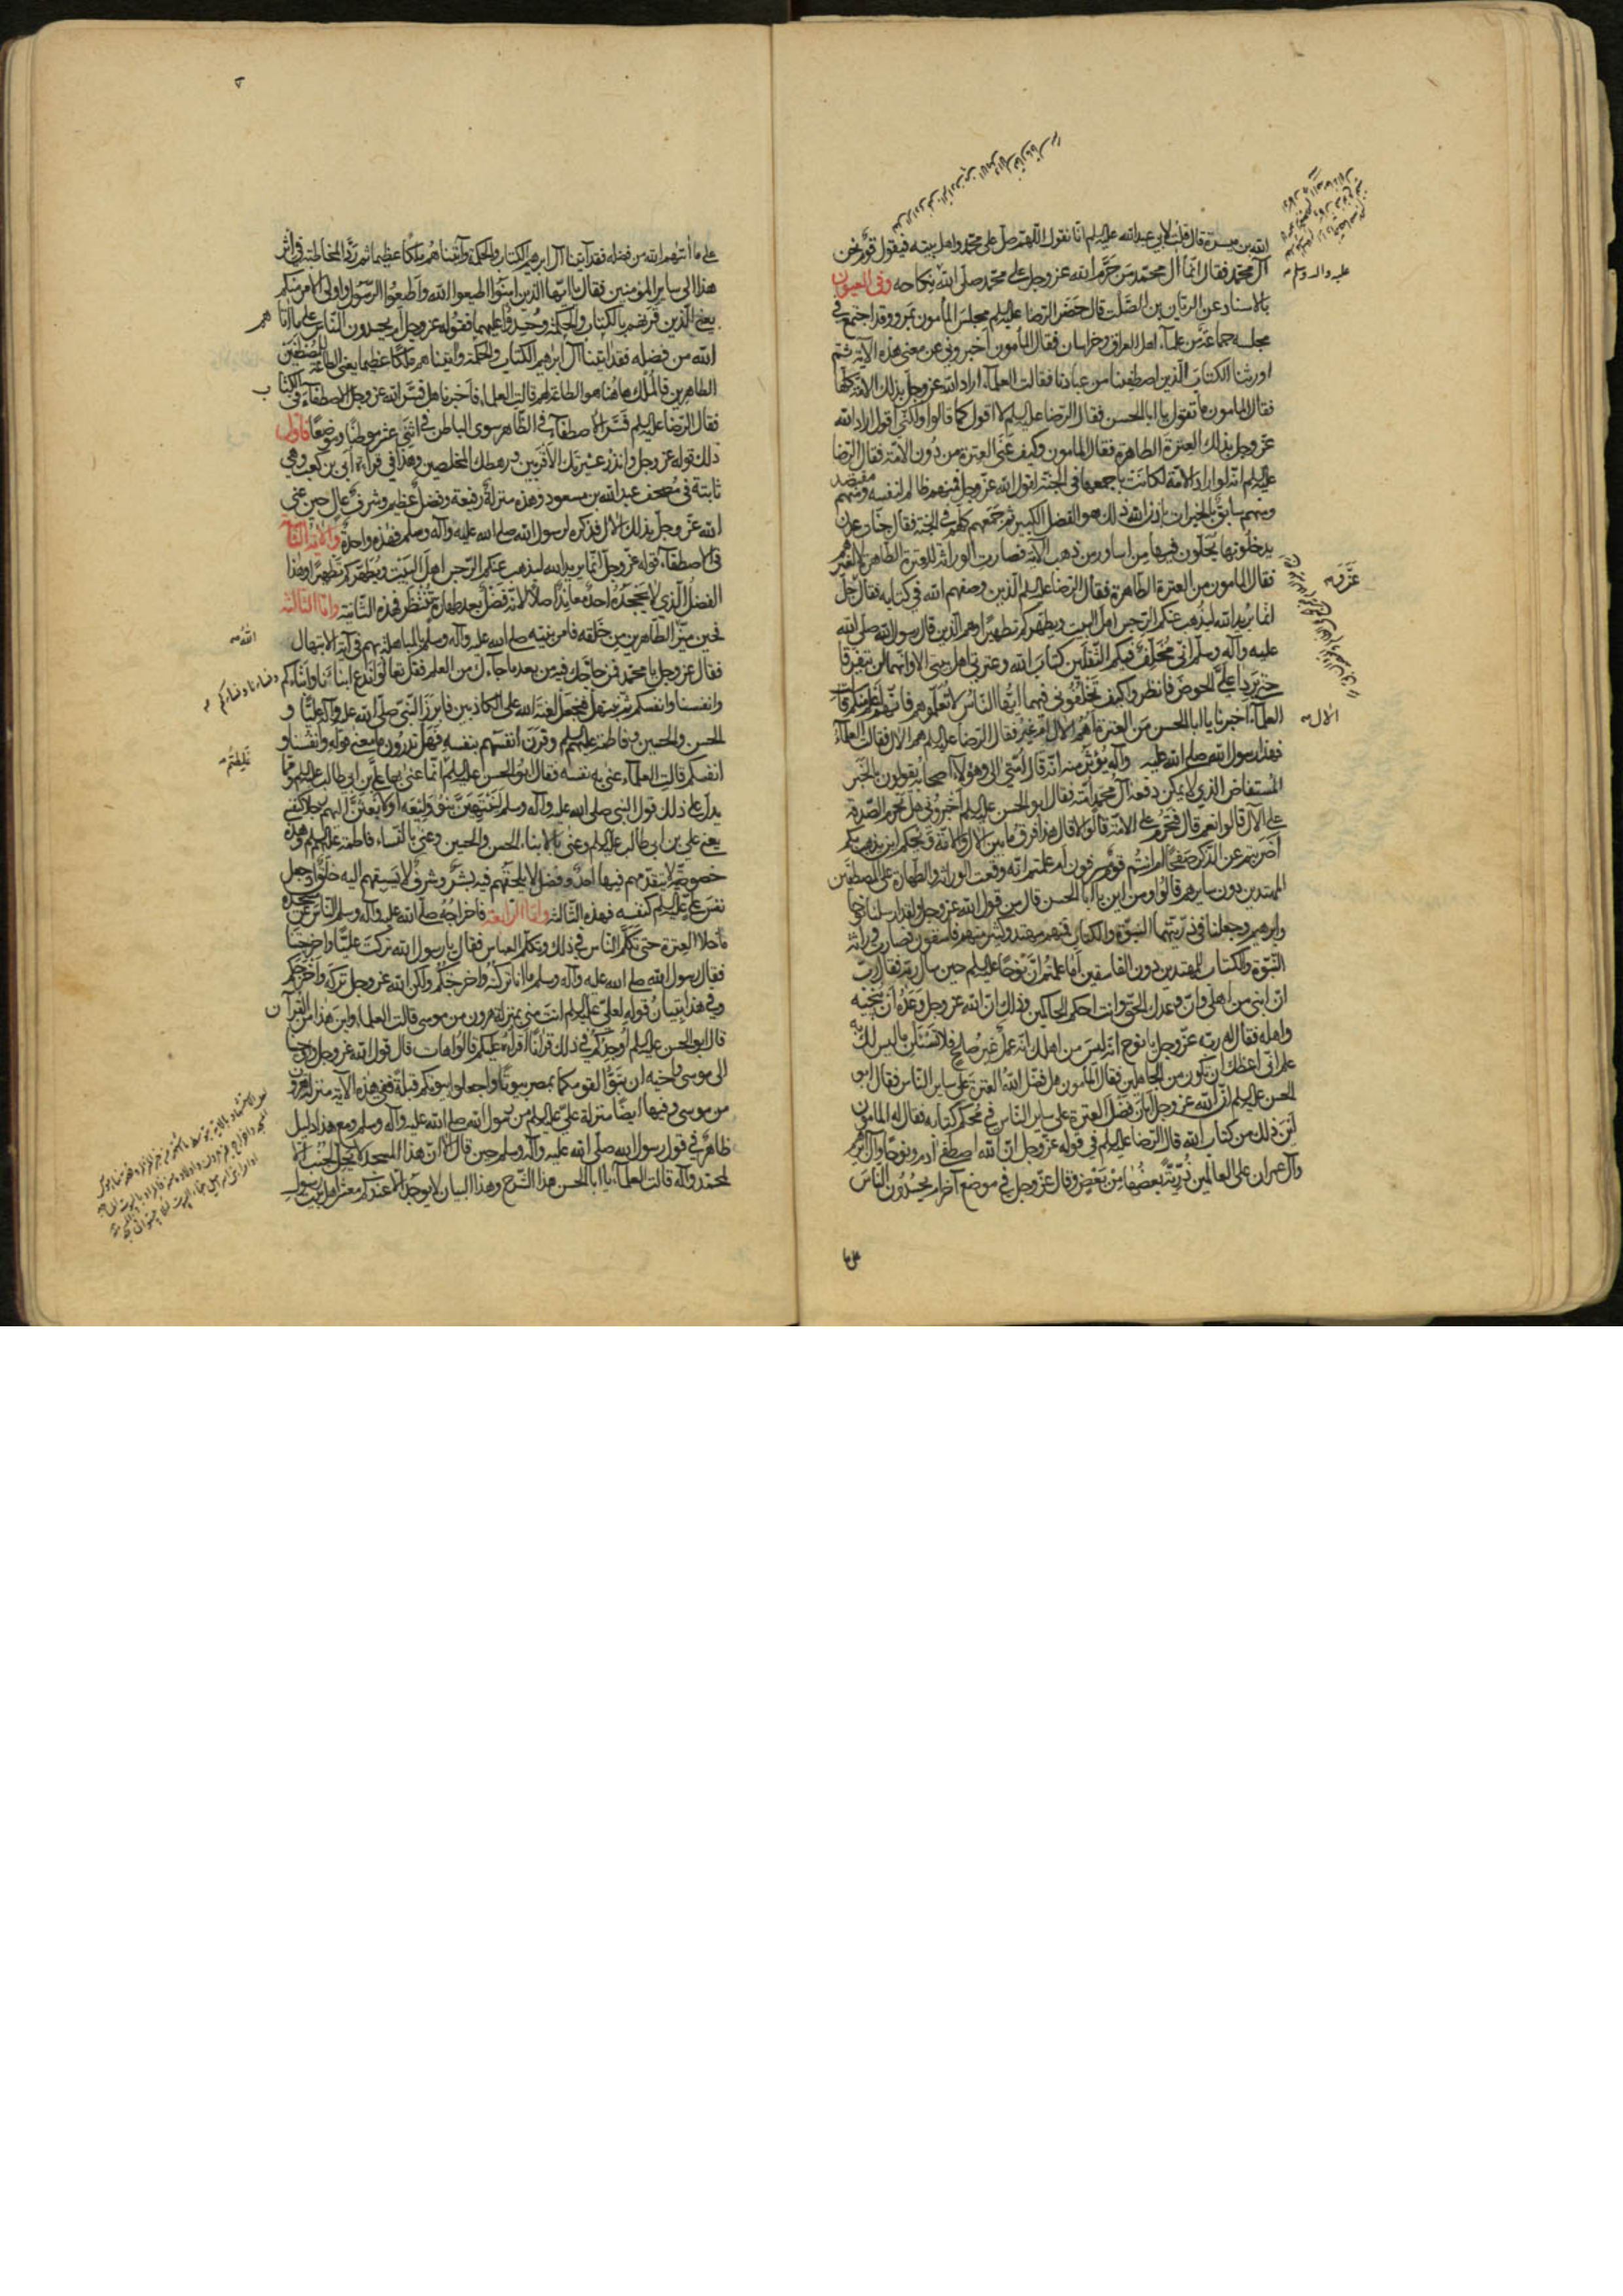 الله بن ميسرة قال قلت لابي عبد الله عليه السلم انا نقول اللهم صل على محمد واهل بيته فيقول قوم نحن
آل محمد فقال انما آل محمد من حرم الله عز وجل على محمد صلى الله نكاحه وفى العيون
بالاسناد عن الريان بن الصلت قال حضر الرضا عليه السلم مجلس المأمون بمرو وقد اجتمع فى
مجلسه جماعة من علماء اهل العراق وخراسان فقال المأمون اخبرونى عن معنى هذه الآية ثم
اورثنا الكتاب الذين اصطفينا من عبادنا فقالت العلماء اراد الله عز وجل بذلك الامة كلها
فقال المامون ما تقول يا ابا الحسن فقال الرضا عليه السلم لا اقول كما قالوا ولكنى اقول اراد الله
عز وجل بذلك العترة الطاهرة فقال المامون وكيف عنى العترة من دون الامة فقال الرضا
عليه السلم انه لو اراد الامة لكانت باجمعها فى الجنة لقول الله عز وجل فمنهم ظالم لنفسه ومنهم مقتصد
ومنهم سابق بالخيرات باذن الله ذلك هو الفضل الكبير ثم جمعهم كلهم فى الجنة فقال جنات عدن
يدخلونها يحلون فيها من اساور من ذهب الآية فصارت الوراثة للعترة الطاهرة لا لغيرهم
فقال المامون من العترة الطاهرة فقال الرضا عليه السلم الذين وصفهم الله فى كتابه فقال جل
انما يريد الله ليذهب عنكم الرجس اهل البيت ويطهركم تطهيرا وهم الذين قال رسول الله صلى الله
عليه وآله وسلم انى مخلف فيكم الثقلين كتاب الله وعترتى اهل بيتى الا وانهما لن يتفرقا
حتى يردا على الحوض فانظروا كيف تخلفونى فيهما ايها الناس لا تعلموهم فانهم اعلم منكم قالت
العلماء اخبرنا يا ابا الحسن من العترة اهم الآل ام غير فقال الرضا عليه السلم هم الآل فقالت العلماء
فهذا رسول الله صلى الله عليه وآله يؤثر منه انه قال امتى الى وهؤلاء اصحابه يقولون بالخبر
المستفاض الذى لا يمكن دفعه آل محمد امته فقال ابو الحسن عليه السلم اخبرونى هل تحرم الصدقة
على الآل قالوا نعم قال فتحرم على الامة قالوا لا قال هذا فرق ما بين الآل والامة ويحكم اين يذهب بكم
اضربتم عن الذكر صفحا ام انتم قوم مسرفون اما علمتم انه وقعت الوراثة والطهارة على المصطفين
المهتدين دون سايرهم قالوا ومن اين يا ابا الحسن قال من قول الله عز وجل ولقد ارسلنا نوحا
وابرهيم وجعلنا فى ذريتهما النبوة والكتاب فمنهم مهتد وكثير منهم فاسقون فصارت وراثة
النبوة والكتاب للمهتدين دون الفاسقين اما علمتم ان نوحا عليه السلم حين سال ربه فقال رب
ان ابنى من اهلى وان وعدك الحق وانت احكم الحاكمين وذلك ان الله عز وجل وعده ان ينجيه
واهله فقال له ربه عز وجل يا نوح انه ليس من اهلك انه عمل غير صالح فلا تسئلن ما ليس لك به
علم انى اعظك ان تكون من الجاهلين فقال المأمون هل فضل الله العترة على ساير الناس فقال ابو
الحسن عليه السلم ان الله عز وجل ابان فضل العترة على ساير الناس فى محكم كتابه فقال له المامون
اين ذلك من كتاب الله قال الرضا عليه السلم فى قوله عز وجل ان الله اصطفى آدم ونوحا وآل ابرهيم
وآل عمران على العالمين ذرية بعضها من بعض وقال عز وجل فى موضع آخر ام يحسدون الناس
عليه واله وسلم
الآل
على ما
على ما آتيهم الله من فضله فقد آتينا آل ابرهيم الكتاب والحكمة وآتيناهم ملكا عظيما ثم رد المخاطبة فى اثر
هذا الى ساير المؤمنين فقال يا ايها الذين امنوا اطيعوا الله واطيعوا الرسول واولى الامر منكم
يعنى الذين قرنهم بالكتاب والحكمة وحسدوا عليهما فقوله عز وجل ام يحسدون الناس على ما اتاهم
الله من فضله فقد اتينا آل ابرهيم الكتاب والحكمة واتيناهم ملكا عظيما يعنى الطاعة للمصطفين
الطاهرين فالملك هاهنا هو الطاعة لهم قالت العلماء فاخبرنا هل فسر الله عز وجل الاصطفاء فى الكتاب
فقال الرضا عليه السلم فسر الاصطفاء فى الظاهر سوى الباطن فى اثنى عشر موطنا وموضعا فاول
ذلك قوله عز وجل وانذر عشيرتك الاقربين ورهطك المخلصين وهكذا فى قراءة ابى بن كعب وهى
ثابتة فى مصحف عبد الله بن مسعود وهذه منزلة رفيعة وفضل عظيم وشرف عال حين عنى
الله عز وجل بذلك الآل فذكره لرسول الله صلى الله عليه وآله وسلم فهذه واحدة والآية الثانية
فى الاصطفاء قوله عز وجل انما يريد الله ليذهب عنكم الرجس اهل البيت ويطهركم تطهيرا وهذا
الفضل الذى لا يجحده احد معاند اصلا لانه فضل بعد طهارة تنتظر فهذه الثانية واما الثالثة
فحين ميز الطاهرين من خلقه فامر نبيه صلى الله عليه وآله وسلم بالمباهلة بهم فى آية الابتهال
فقال عز وجل يا محمد فمن حاجك فيه من بعد ما جاءك من العلم فقل تعالوا ندع ابناءنا وابناءكم
وانفسنا وانفسكم ثم نبتهل فنجعل لعنة الله على الكاذبين فابرز النبى صلى الله عليه وآله عليا و
الحسن والحسين وفاطمة عليهم السلم وقرن انفسهم بنفسه فهل تدرون ما معنى قوله وانفسنا و
انفسكم قالت العلماء عنى به نفسه فقال ابو الحسن عليه السلم انما عنى بها على بن ابى طالب عليه السلم ومما
يدل على ذلك قول النبى صلى الله عليه وآله وسلم لينتهين بنو وليعة او لابعثن اليهم رجلا كنفسى
يعنى على بن ابى طالب عليه السلم وعنى بالابناء الحسن والحسين وعنى بالنساء فاطمة عليها السلم وهذه
خصوصية لا يتقدمهم فيها احد وفضل لا يلحقهم فيه بشر وشرف لا يسبقهم اليه خلق اذ جعل
نفس على عليه السلم كنفسه فهذه الثالثة واما الرابعة فاخراجه صلى الله عليه وآله وسلم الناس من مسجده
ما خلا العترة حتى تكلم الناس فى ذلك وتكلم العباس فقال يا رسول الله تركت عليا واخرجتنا
فقال رسول الله صلى الله عليه وآله وسلم ما انا تركته واخرجتكم ولكن الله عز وجل تركه واخرجكم
وفى هذا تبيان قوله لعلى عليه السلم انت منى بمنزلة هرون من موسى قالت العلماء واين هذا من القرآن
قال ابو الحسن عليه السلم اوجدكم فى ذلك قرآنا اقراه عليكم قالوا هات قال قول الله عز وجل واوحينا
الى موسى واخيه ان تبوا لقومكما بمصر بيوتا واجعلوا بيوتكم قبلة ففى هذه الآية منزلة هرون
من موسى وفيها ايضا منزلة على عليه السلم من رسول الله صلى الله عليه وآله وسلم ومع هذا دليل
ظاهر فى قول رسول الله صلى الله عليه وآله وسلم حين قال الا ان هذا المسجد لا يحل لجنب الا
لمحمد وآله قالت العلماء يا ابا الحسن هذا الشرح وهذا البيان لا يوجد الا عندكم معشر اهل بيت رسول
الله
ونساءنا ونساءكم